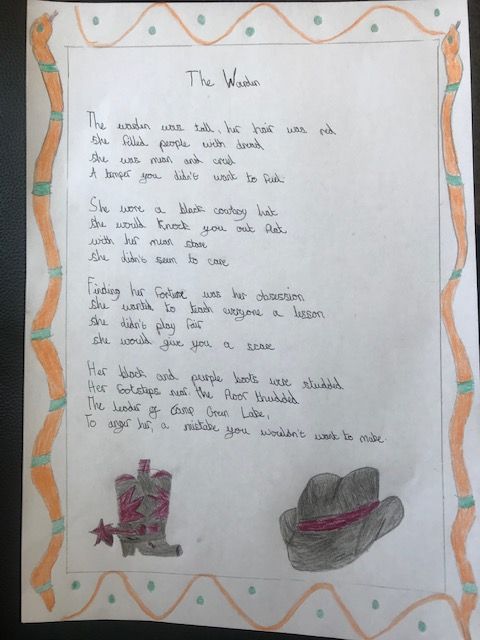 The Warden
The warden was tall, her hair was red
she filled people with dread
she was mean and cruel
A temper you didn't want to fuel.
She wore a black cowboy hat
she would knock you out flat
with her mean stare
she didn't seem to care
Finding her fortune was her obsession
she wanted to teach everyone a lesson
she didn't play fair
she would give you a scare
Her black and purple boots were studded
Her footsteps near the floor thudded
The leader of Camp Green Lake,
To anger her, a mistake you wouldn't want to make.